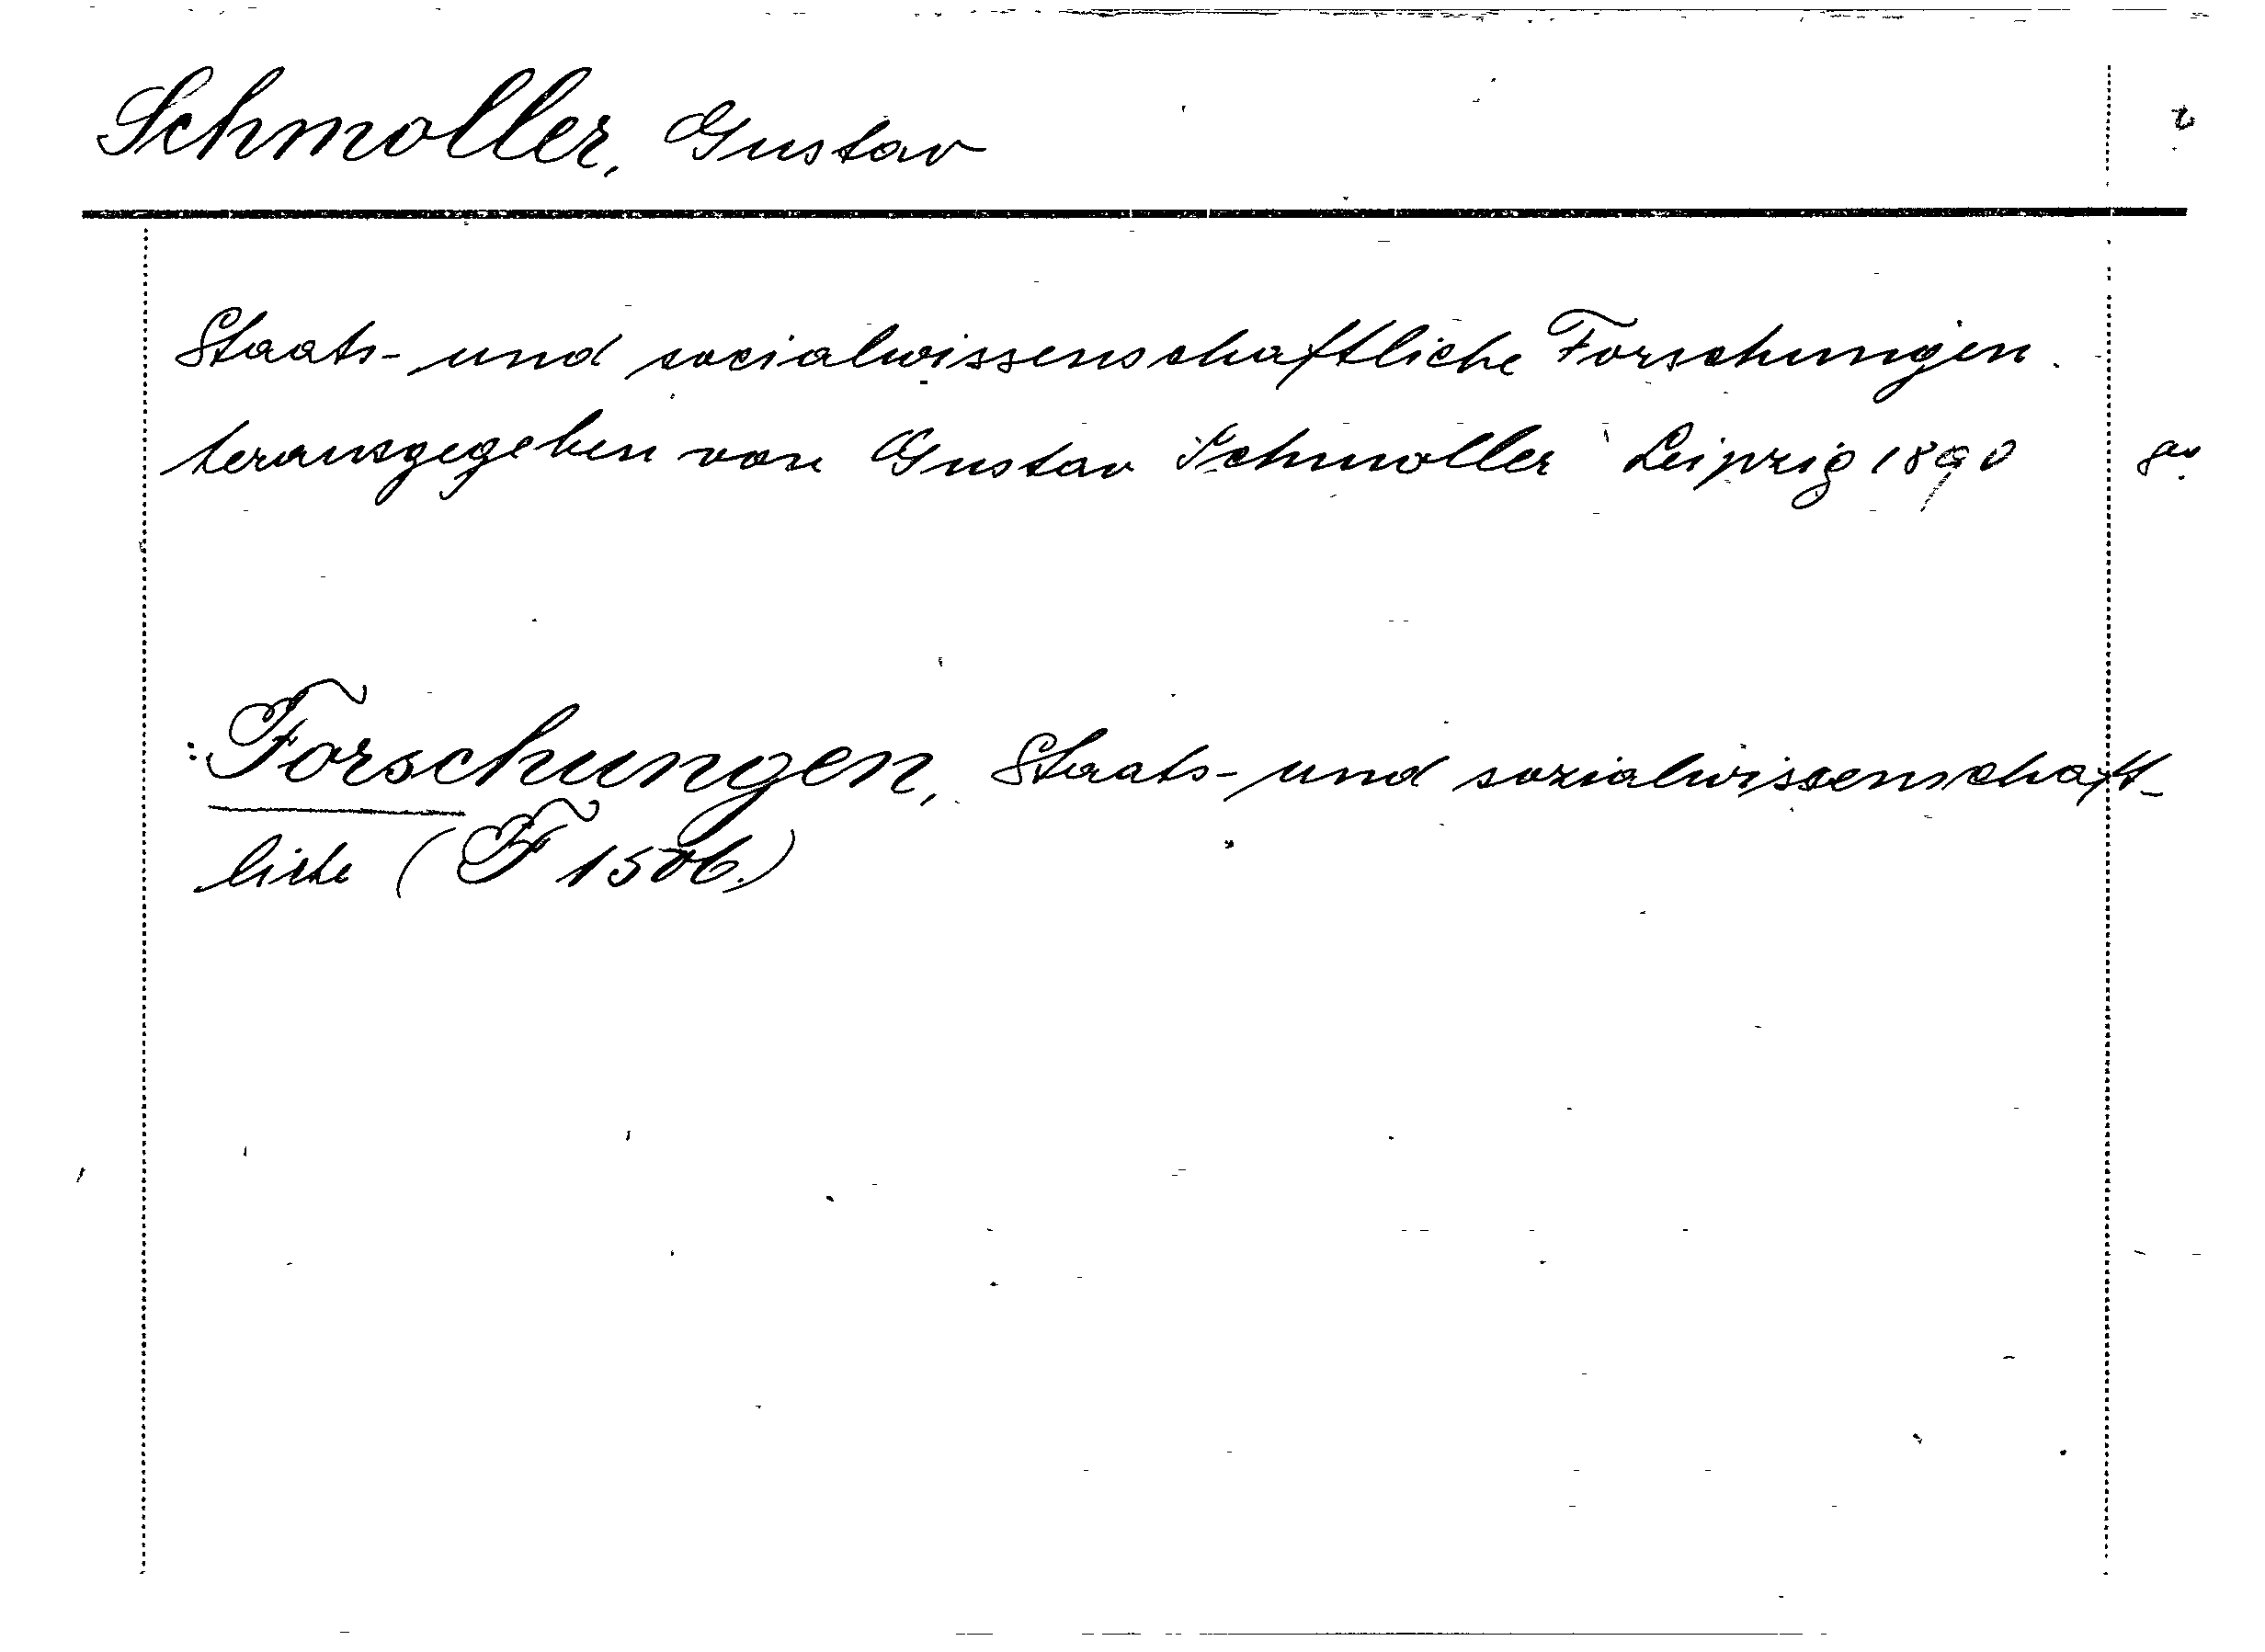 Schmoller, Gustav
Staats- und socialwissenschaftliche Forschungen.
herausgegeben von Gustav Schmoller Leipzig 1890
: Forschungen, Staats- und sozialwissenschaft-
liche (F 1506.)